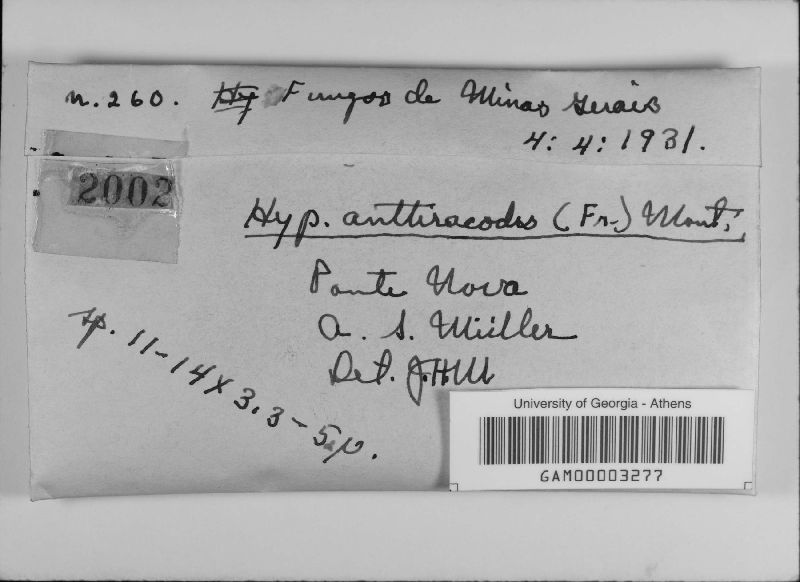 n. 260. Hy Fungos de Minas Gerais
4: 4: 1931.
2002
Hyp. anthracodes (Fr.) Mont.
Ponte Nova
A. S. Müller
Det. J.H.M
sp. 11-14 X 3.3-5µ.
University of Georgia - Athens
GAM00003277